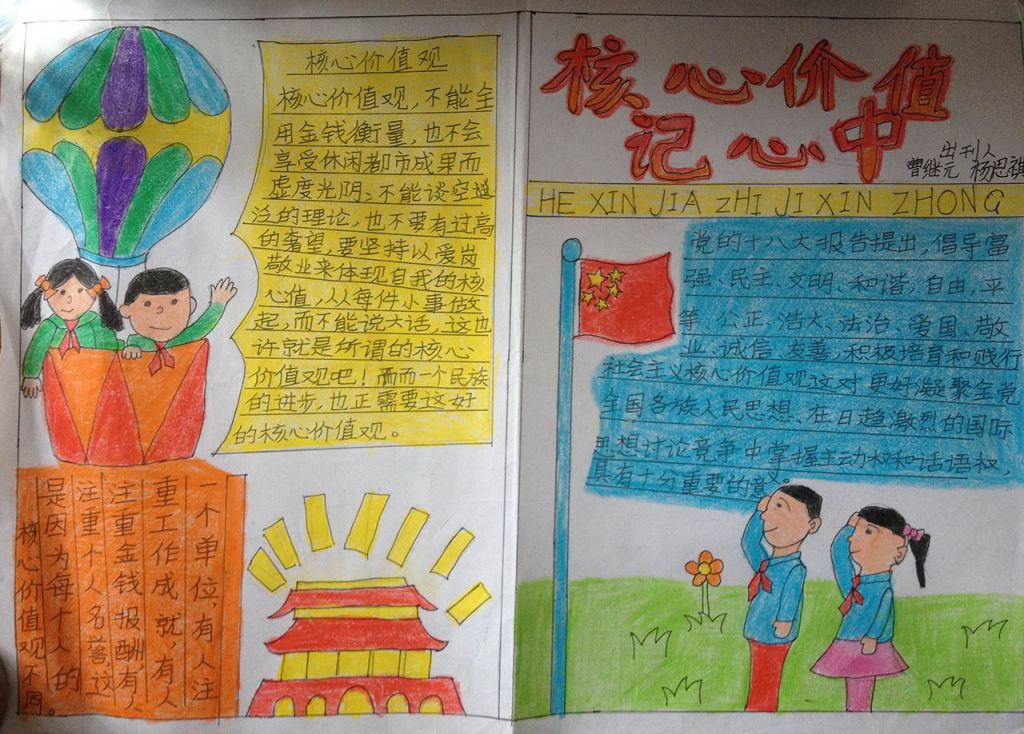 核心价值观
核心价值观,不能全
用金钱衡量,也不会
享受休闲都市成果而
虚度光阴;不能谈空道
泛的理论,也不要有过高
的奢望,要坚持以爱岗
敬业来体现自我的核
心值,从从每件小事做
起,而不能说大话,这也
许就是所谓的核心
价值观吧!而而一个民族
的进步,也正需要这好
的核心价值观。
一个单位,有人注
重工作成就,有人
注重金钱报酬,有人
注重个人名誉,这
是因为每个人的
核心价值观不同。
核心价值
记心中
出刊人
曹继元 杨思祺
HE XIN JIA ZHI JI XIN ZHONG
党的十八大报告提出,倡导富
强、民主、文明、和谐,自由,平
等、公正、浩大、法治、爱国、敬
业、诚信、友善,积极培育和贱行
社会主义核心价值观这对更好凝聚全党
全国各族人民思想、在日趋激烈的国际
思想讨论竞争中掌握主动权和话语权,
具有十分重要的意。